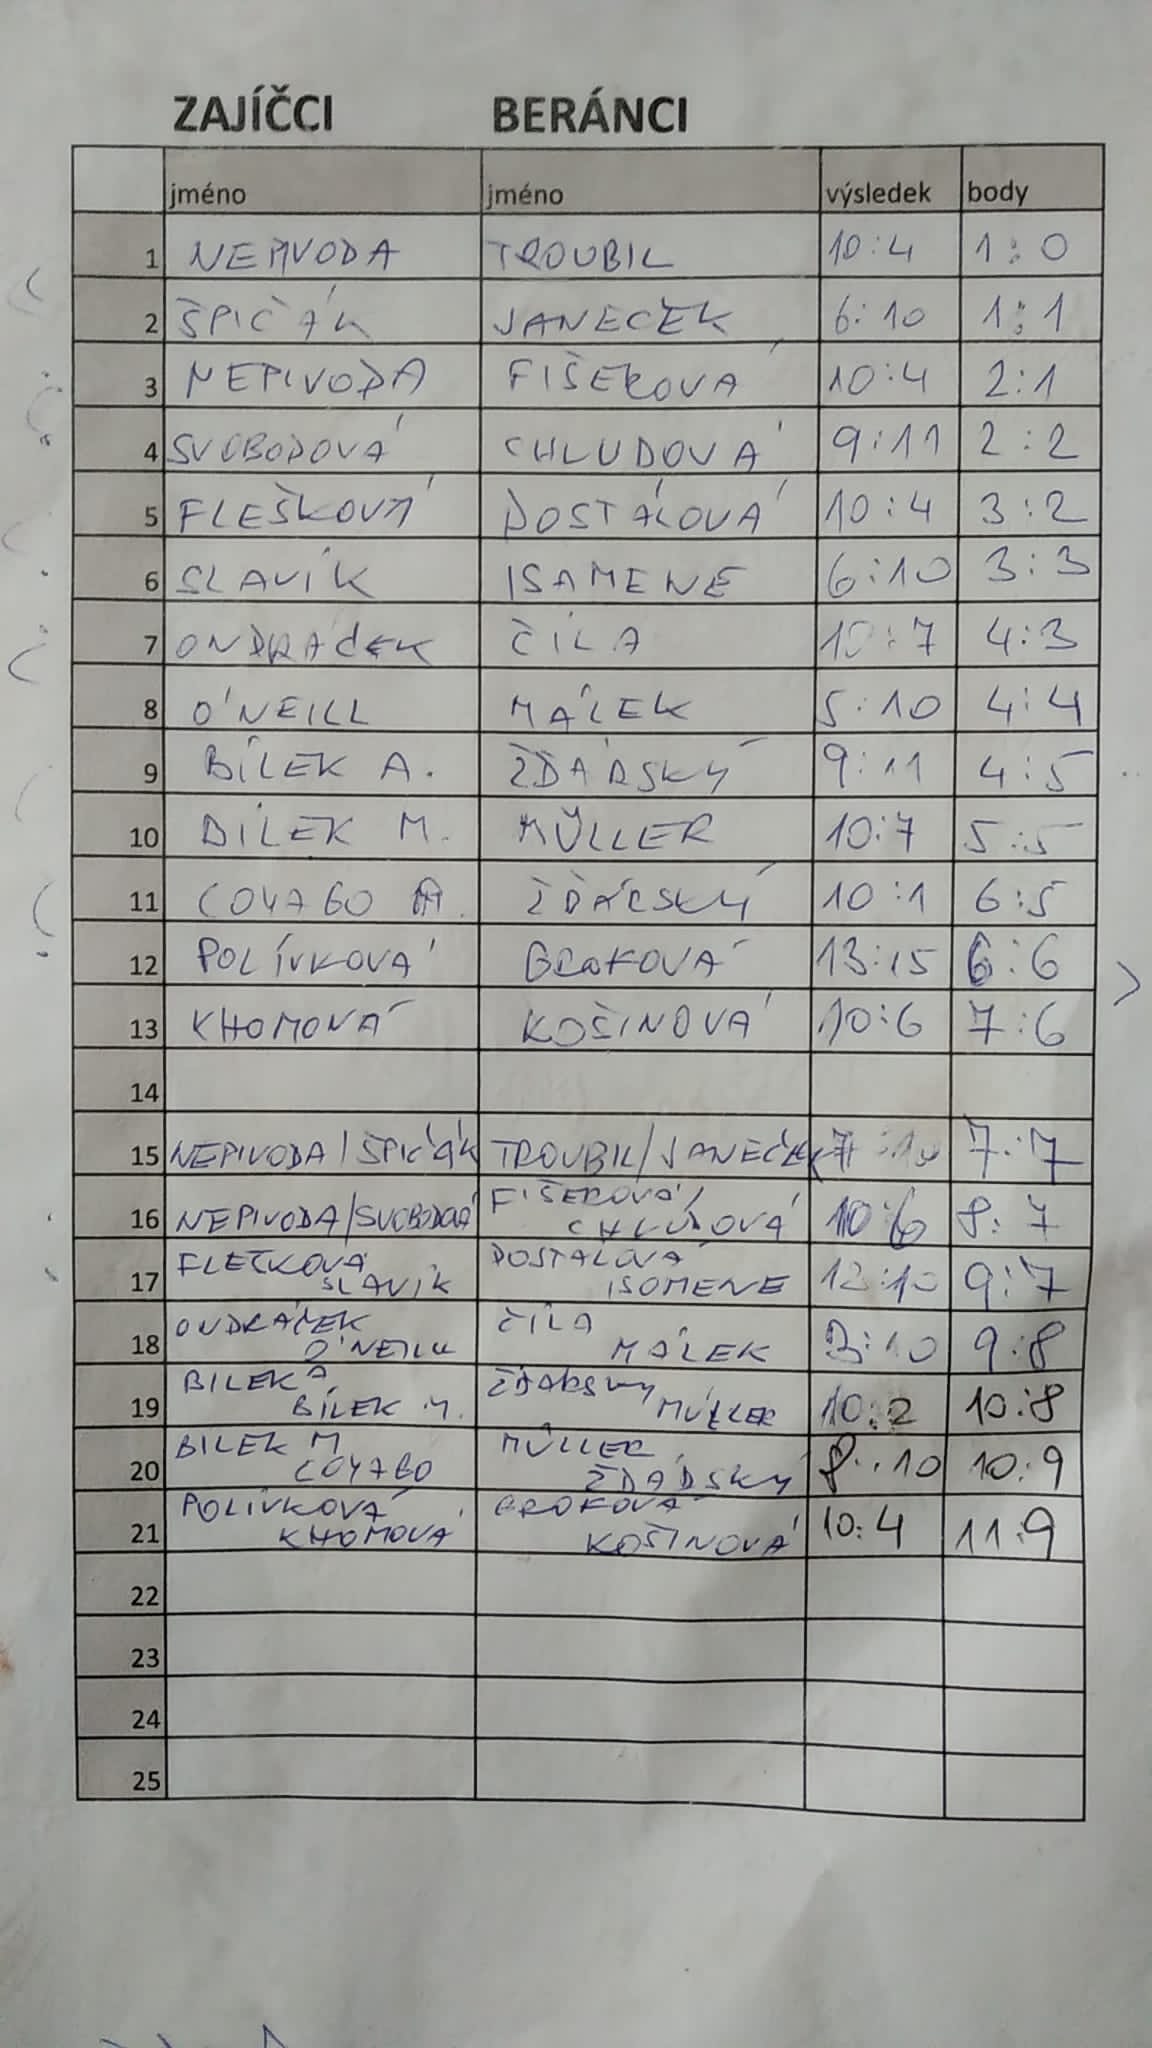 ZAJÍČCI BERÁNCI
jméno jméno výsledek body
1 NEPIVODA TROUBIL 10:4 1:0
2 ŠPIČÁK JANEČEK 6:10 1:1
3 NEPIVODA FIŠEROVÁ 10:4 2:1
4 SVOBODOVÁ CHLUDOVÁ 9:11 2:2
5 FLEŠKOVÁ DOSTÁLOVÁ 10:4 3:2
6 SLAVÍK ISAMENE 6:10 3:3
7 ONDRÁČEK ČÍLA 10:7 4:3
8 O'NEILL MÁLEK 5:10 4:4
9 BÍLEK A. ŽĎÁRSKÝ 9:11 4:5
10 BÍLEK M. MÜLLER 10:7 5:5
11 ŽĎÁRSKÝ 10:1 6:5
12 POLÍVKOVÁ BROKOVÁ 13:15 6:6
13 KHOMOVÁ KOŠINOVÁ 10:6 7:6
14
15 NEPIVODA/ŠPIČÁK TROUBIL/JANEČEK 7:10 7:7
16 NEPIVODA/SVOBODOVÁ FIŠEROVÁ/ 10:6 8:7
CHLUDOVÁ
17 FLEŠKOVÁ DOSTÁLOVÁ 12:10 9:7
SLAVÍK ISOMENE
18 ONDRÁČEK ČÍLA 3:10 9:8
O'NEILL MÁLEK
19 BÍLEK A. ŽĎÁRSKÝ 10:2 10:8
BÍLEK M. MÜLLER
20 BÍLEK M MÜLLER 8:10 10:9
ŽĎÁRSKÝ
21 POLÍVKOVÁ BROKOVÁ 10:4 11:9
KHOMOVÁ KOŠINOVÁ
22
23
24
25